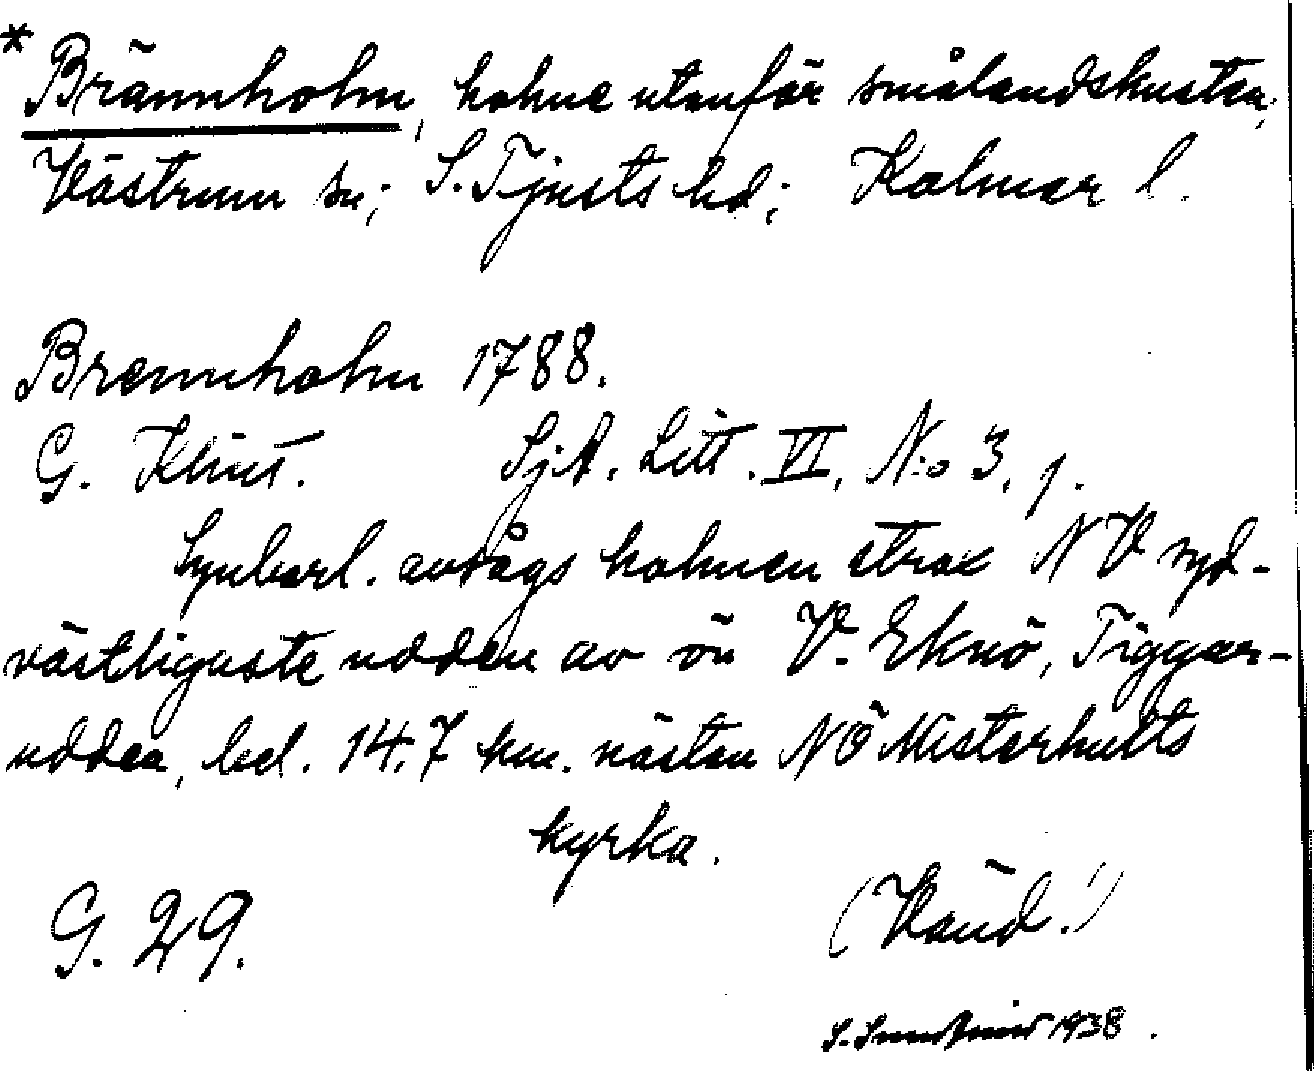 * Brännholm, holme utanför smålandskusten,
Västrum sn; S. Tjusts hd; Kalmar l.
Brennholm 1788.
G. Klint. SjA. Litt. VI, N:o 3, 1.
Synbarl. avsågs holmen strax NV syd-
västligaste udden av ön V. Eknö, Tiggar-
udden, bel. 14,7 km. nästan NÖ Misterhults
kyrka.
G. 29. (Vänd!)
S. 1938.